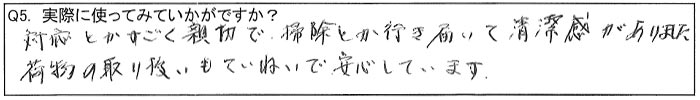 Q5. 実際に使ってみていかがですか？
対応とかすごく親切で、掃除とか行き届いて清潔感がありました
荷物の取り扱いもていねいで安心しています。